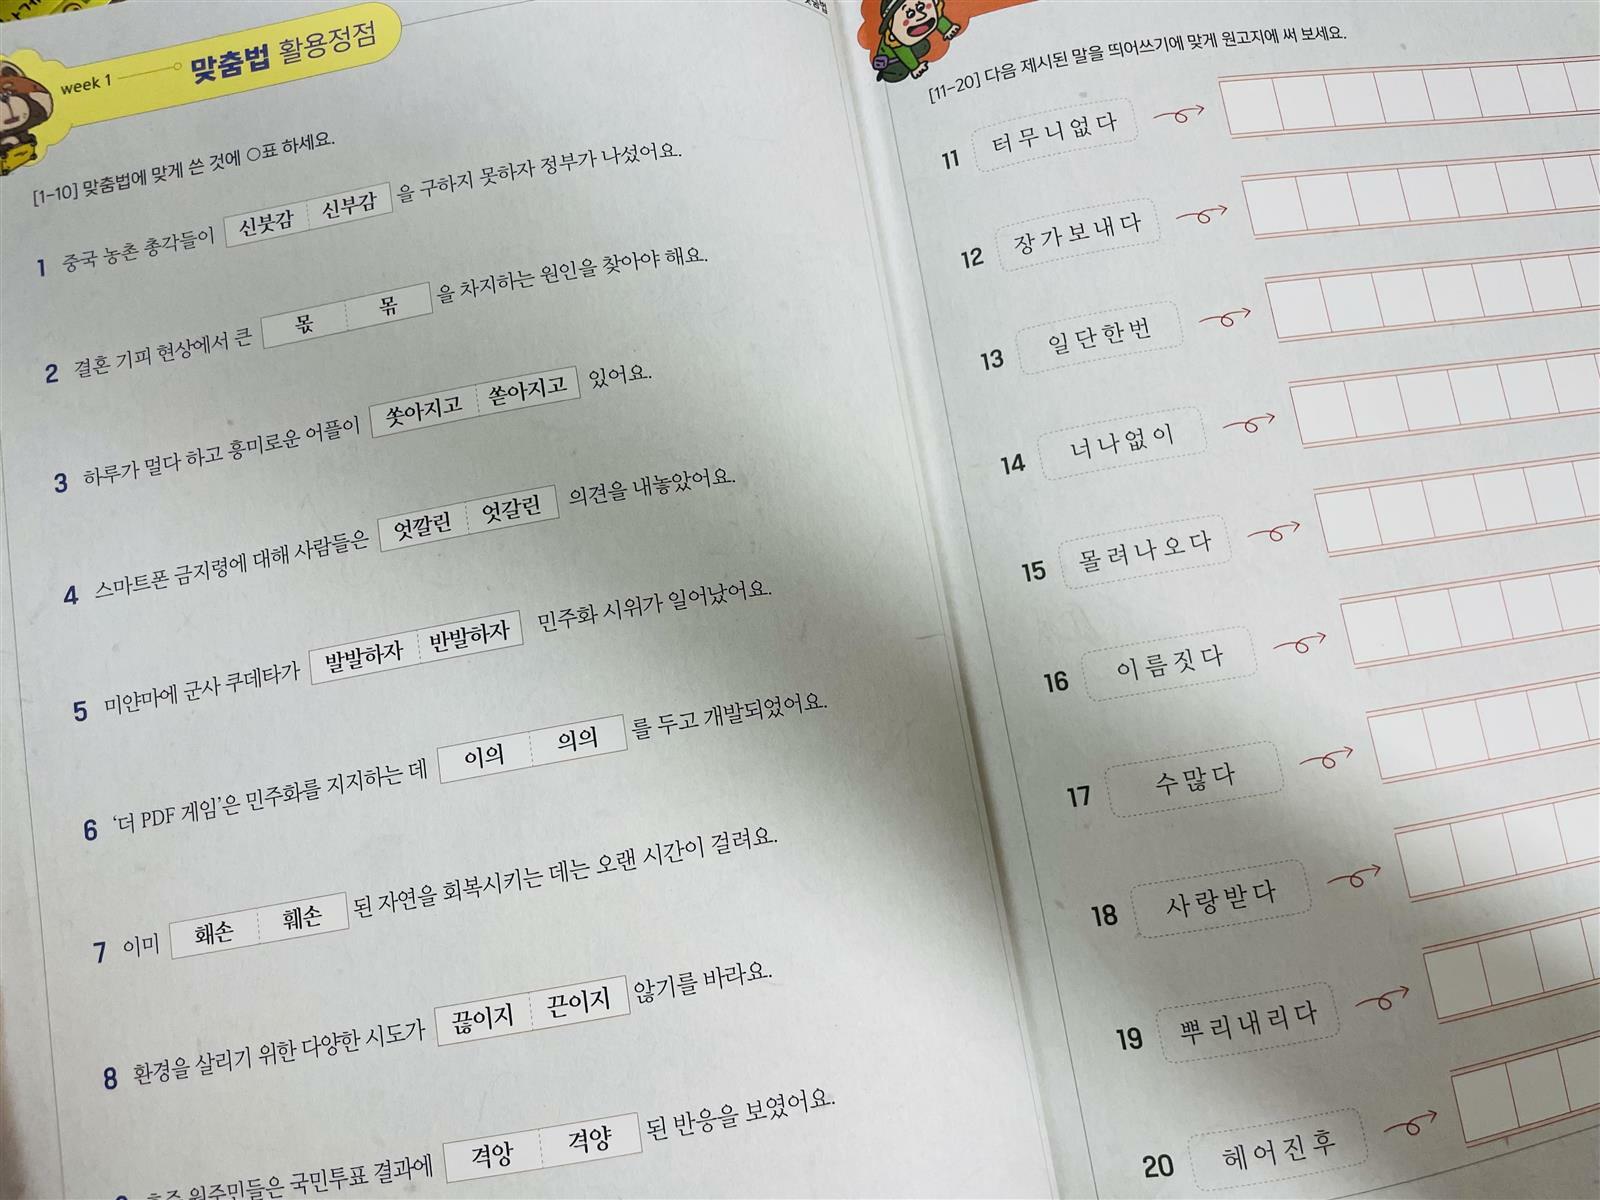 week 1 맞춤법 활용정점
[1-10] 맞춤법에 맞게 쓴 것에 ○표 하세요.
1 중국 농촌 총각들이 신붓감 신부감 을 구하지 못하자 정부가 나섰어요.
2 결혼 기피 현상에서 큰 몫 몪 을 차지하는 원인을 찾아야 해요.
3 하루가 멀다 하고 흥미로운 어플이 쏯아지고 쏟아지고 있어요.
4 스마트폰 금지령에 대해 사람들은 엇깔린 엇갈린 의견을 내놓았어요.
5 미얀마에 군사 쿠데타가 발발하자 반발하자 민주화 시위가 일어났어요.
6 ‘더 PDF 게임’은 민주화를 지지하는 데 이의 의의 를 두고 개발되었어요.
7 이미 홰손 훼손 된 자연을 회복시키는 데는 오랜 시간이 걸려요.
8 환경을 살리기 위한 다양한 시도가 끊이지 끈이지 않기를 바라요.
원주민들은 국민투표 결과에 격앙 격양 된 반응을 보였어요.
[11-20] 다음 제시된 말을 띄어쓰기에 맞게 원고지에 써 보세요.
11 터무니없다
12 장가보내다
13 일단한번
14 너나없이
15 몰려나오다
16 이름짓다
17 수많다
18 사랑받다
19 뿌리내리다
20 헤어진후